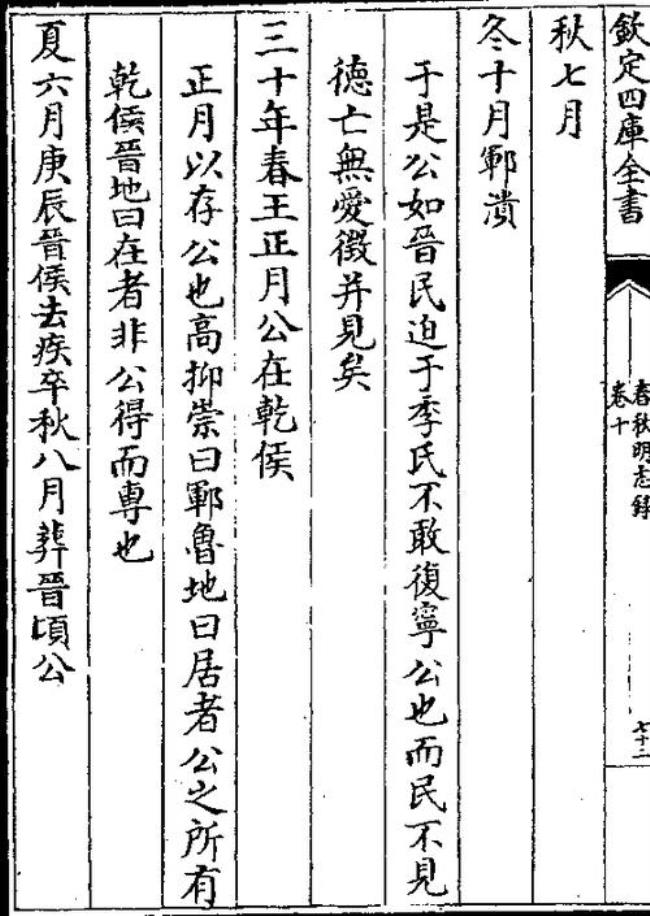 欽定四庫全書
春秋明志錄
卷十
七十二
秋七月
冬十月鄆潰
于是公如晉民迫于季氏不敢復寧公也而民不見
德亡無愛徴并見矣
三十年春王正月公在乾侯
正月以存公也高抑崇曰鄆魯地曰居者公之所有
乾侯晉地曰在者非公得而專也
夏六月庚辰晉侯去疾卒秋八月葬晉頃公